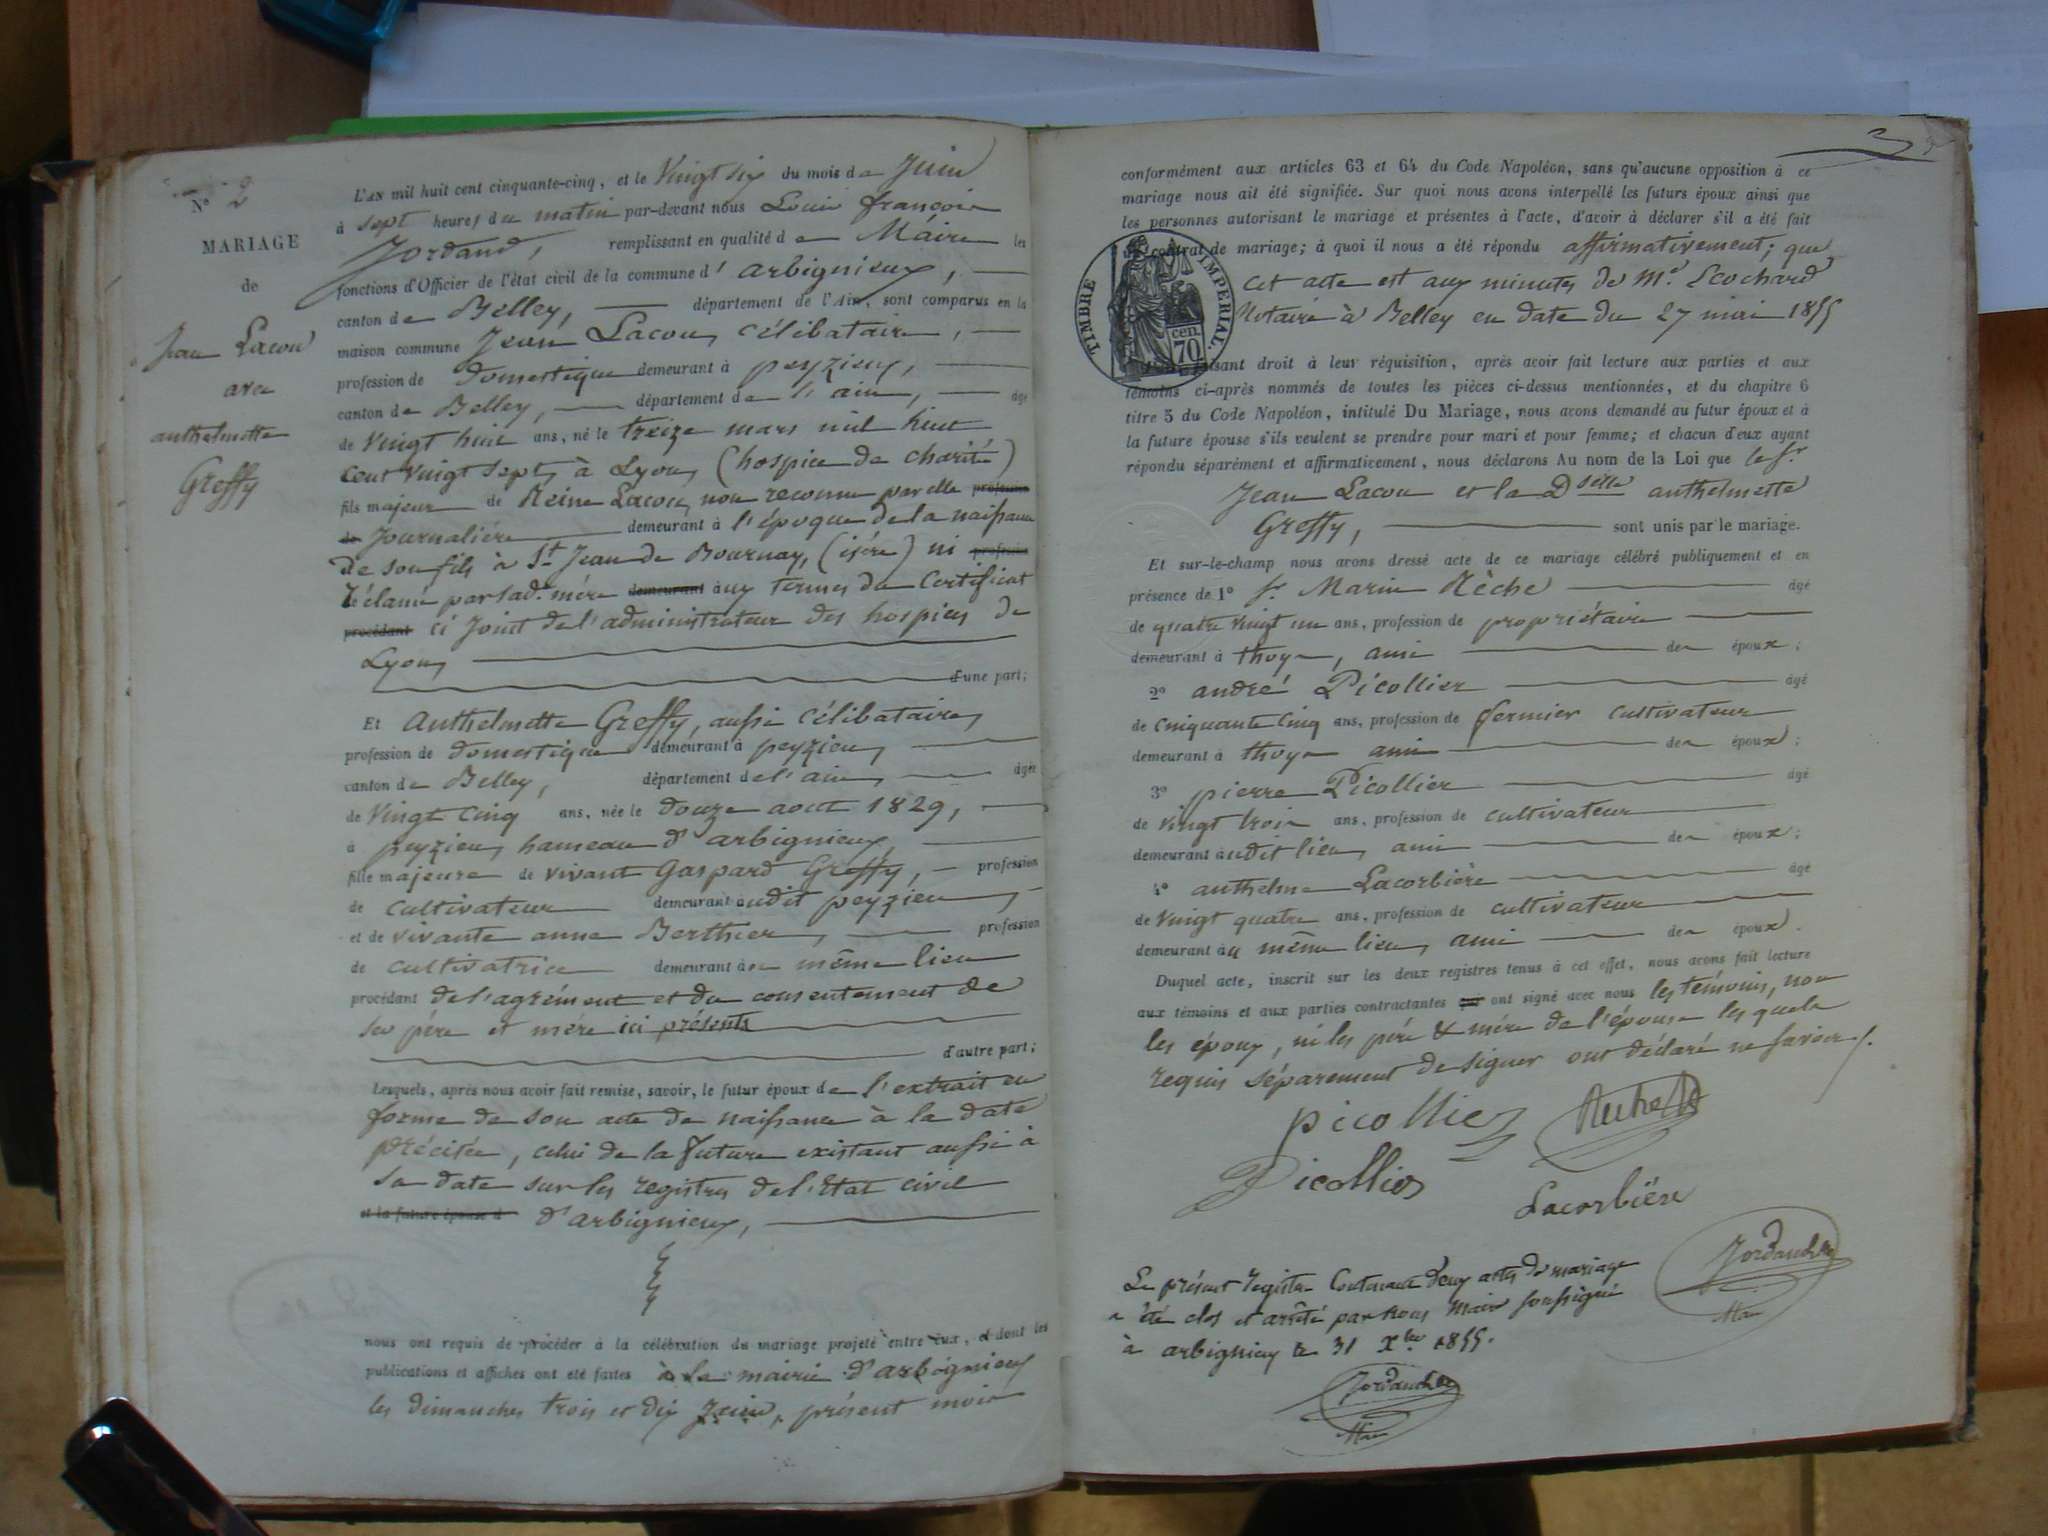 N° 2
MARIAGE
de
Jean Lacou
avec
anthelmette
Greffy
L'AN mil huit cent cinquante-cinq, et le Vingt six du mois de Juin
à sept heures du matin par-devant nous Louis françois
Jordand, remplissant en qualité de Maire les
fonctions d'Officier de l'état civil de la commune d'arbignieux,
canton de Belley, département de l'Ain, sont comparus en la
maison commune Jean Lacou, célibataire,
profession de domestique demeurant à peyzieu,
canton de Belley, département de l'ain, âgé
de vingt huit ans, né le treize mars mil huit
cent vingt sept, à Lyon, (hospice de charité)
fils majeur de Reine Lacou, non reconnu par elle profession
de Journalière demeurant à l'époque de la naissance
de son fils à St Jean de Bournay, (isére) ni profession
réclamé par lad. mére demeurant aux termes du Certificat
procédant ci joint de l'administrateur des hospices de
Lyon,
d'une part;
Et Anthelmette Greffy, aussi célibataire,
profession de domestique demeurant à peyzieu,
canton de Belley, département de l'ain, âgée
de Vingt cinq ans, née le douze aout 1829,
à peyzieu, hameau d'arbignieux,
fille majeure de vivant Gaspard Greffy, profession
de cultivateur demeurant audit peyzieu,
et de vivante anne Berthier, profession
de cultivatrice demeurant au même lieu
procédant de l'agrément et du consentement de
ses père et mére ici présents
d'autre part;
Lesquels, après nous avoir fait remise, savoir, le futur époux de l'extrait en
forme de son acte de naissance à la date
précitée, celui de la future existant aussi à
sa date sur les registres de l'Etat civil
et la future épouse d d'arbignieux,
nous ont requis de procéder à la célébration du mariage projeté entre eux, et dont les
publications et affiches ont été faites à la mairie d'arbignieux
les dimanches trois et dix Juin, présent mois
conformément aux articles 63 et 64 du Code Napoléon, sans qu'aucune opposition à ce
mariage nous ait été signifiée. Sur quoi nous avons interpellé les futurs époux ainsi que
les personnes autorisant le mariage et présentes à l'acte, d'avoir à déclarer s'il a été fait
contrat de mariage; à quoi il nous a été répondu affirmativement; que
TIMBRE IMPERIAL.
cen. 70
cet acte est aux minutes de Me. Leochard
Notaire à Belley en date du 27 mai 1855
faisant droit à leur réquisition, après avoir fait lecture aux parties et aux
témoins ci-après nommés de toutes les pièces ci-dessus mentionnées, et du chapitre 6
titre 5 du Code Napoléon, intitulé Du Mariage, nous avons demandé au futur époux et à
la future épouse s'ils veulent se prendre pour mari et pour femme; et chacun d'eux ayant
répondu séparément et affirmativement, nous déclarons Au nom de la Loi que le Sr
Jean Lacou et la Dselle anthelmette
Greffy, sont unis par le mariage.
Et sur-le-champ nous avons dressé acte de ce mariage célébré publiquement et en
présence de 1° Sr Marin Rèche âgé
de quatre vingt un ans, profession de propriétaire
demeurant à thoys, ami des époux;
2° andré Picollier âgé
de cinquante cinq ans, profession de fermier cultivateur
demeurant à thoys ami des époux;
3° pierre Picollier âgé
de vingt trois ans, profession de cultivateur
demeurant audit lieu, ami des époux;
4° anthelme Lacorbière âgé
de vingt quatre ans, profession de cultivateur
demeurant au même lieu, ami des époux.
Duquel acte, inscrit sur les deux registres tenus à cet effet, nous avons fait lecture
aux témoins et aux parties contractantes qui ont signé avec nous les témoins, non
les époux, ni les pére & mére de l'épouse les quels
requis séparement de signer ont déclaré ne savoir.
Picollier
Picollier
Lacorbiëre
Jordand
Maire
Le présent registre Contenant deux actes de mariage
a été clos et arrêté par Nous Maire soussigné
à arbignieu le 31 Xbre 1855.
Jordand
Maire